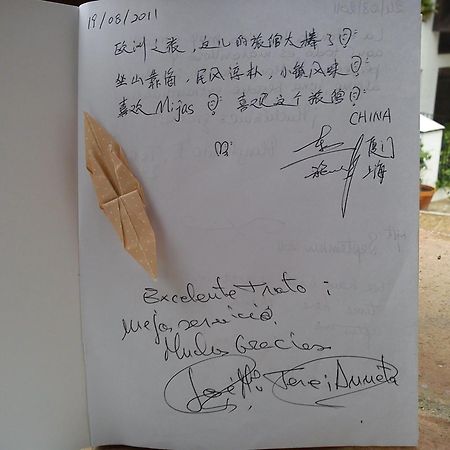 19/08/2011
欧洲之旅，这儿的旅馆太棒了
坐山靠海，民风淳朴，小镇风味
喜欢 Mijas 喜欢这个旅馆
CHINA
厦门
上海
Excelente trato i
mejor servicio.
Muchas Gracias
José